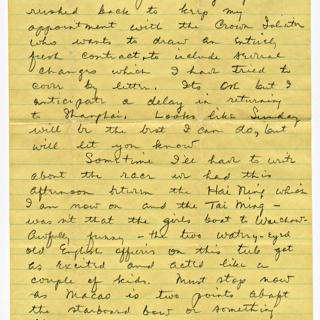 rushed back to keep my
appointment with the Crown Solicitor
who wants to draw an entirely
fresh contract, to include several
changes which I have tried to
cover by letter. Its OK but I
anticipate a delay in returning
to Shanghai. Looks like Sunday
will be the best I can do, but
will let you know
Sometime I'll have to write
about the race we had this
afternoon between the Hai Ning which
I am now on and the Tai Ming -
wasn't that the girls boat to Wuchow -
Awfully funny - the two watery-eyed
old English officers on this tub got
as excited and acted like a
couple of kids. Must stop now
as Macao is two points abaft
the starboard bow or something